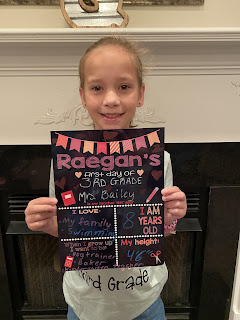 Raegan's
first day of
3RD GRADE
Mrs. Bailey
I LOVE:
My family
Swimming
I AM
8 YEARS
OLD
When I grow up
I want to be
Dog trainer
Baker
My height:
48"
3rd Grade